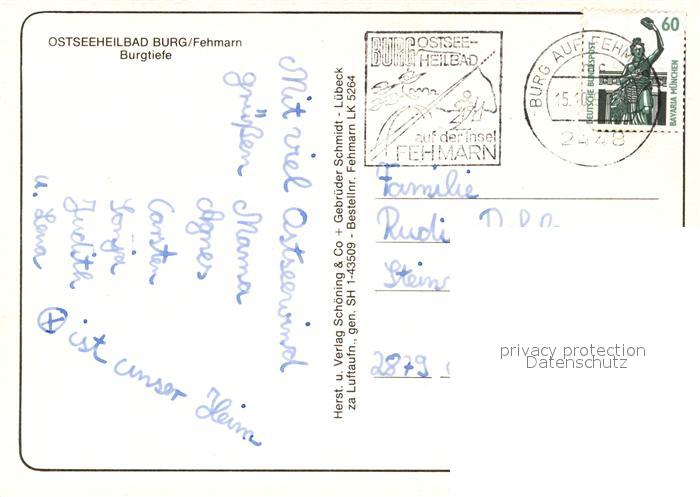 OSTSEEHEILBAD BURG/Fehmarn
Burgtiefe
Mit viel Ostseewind
grüßen Mama
Agnes
Carsten
Sonja
Judith
u. Lena
⊕ ist unser Heim
Herst. u. Verlag Schöning & Co + Gebrüder Schmidt - Lübeck
za Luftaufn., gen. SH 1-43509 - Bestellnr. Fehmarn LK 5264
BURG OSTSEE-
HEILBAD
auf der Insel
FEHMARN
BURG AUF FEHM
15.10
2448
60
DEUTSCHE BUNDESPOST
BAVARIA MÜNCHEN
Familie
Rudi
Stein
2879
privacy protection
Datenschutz